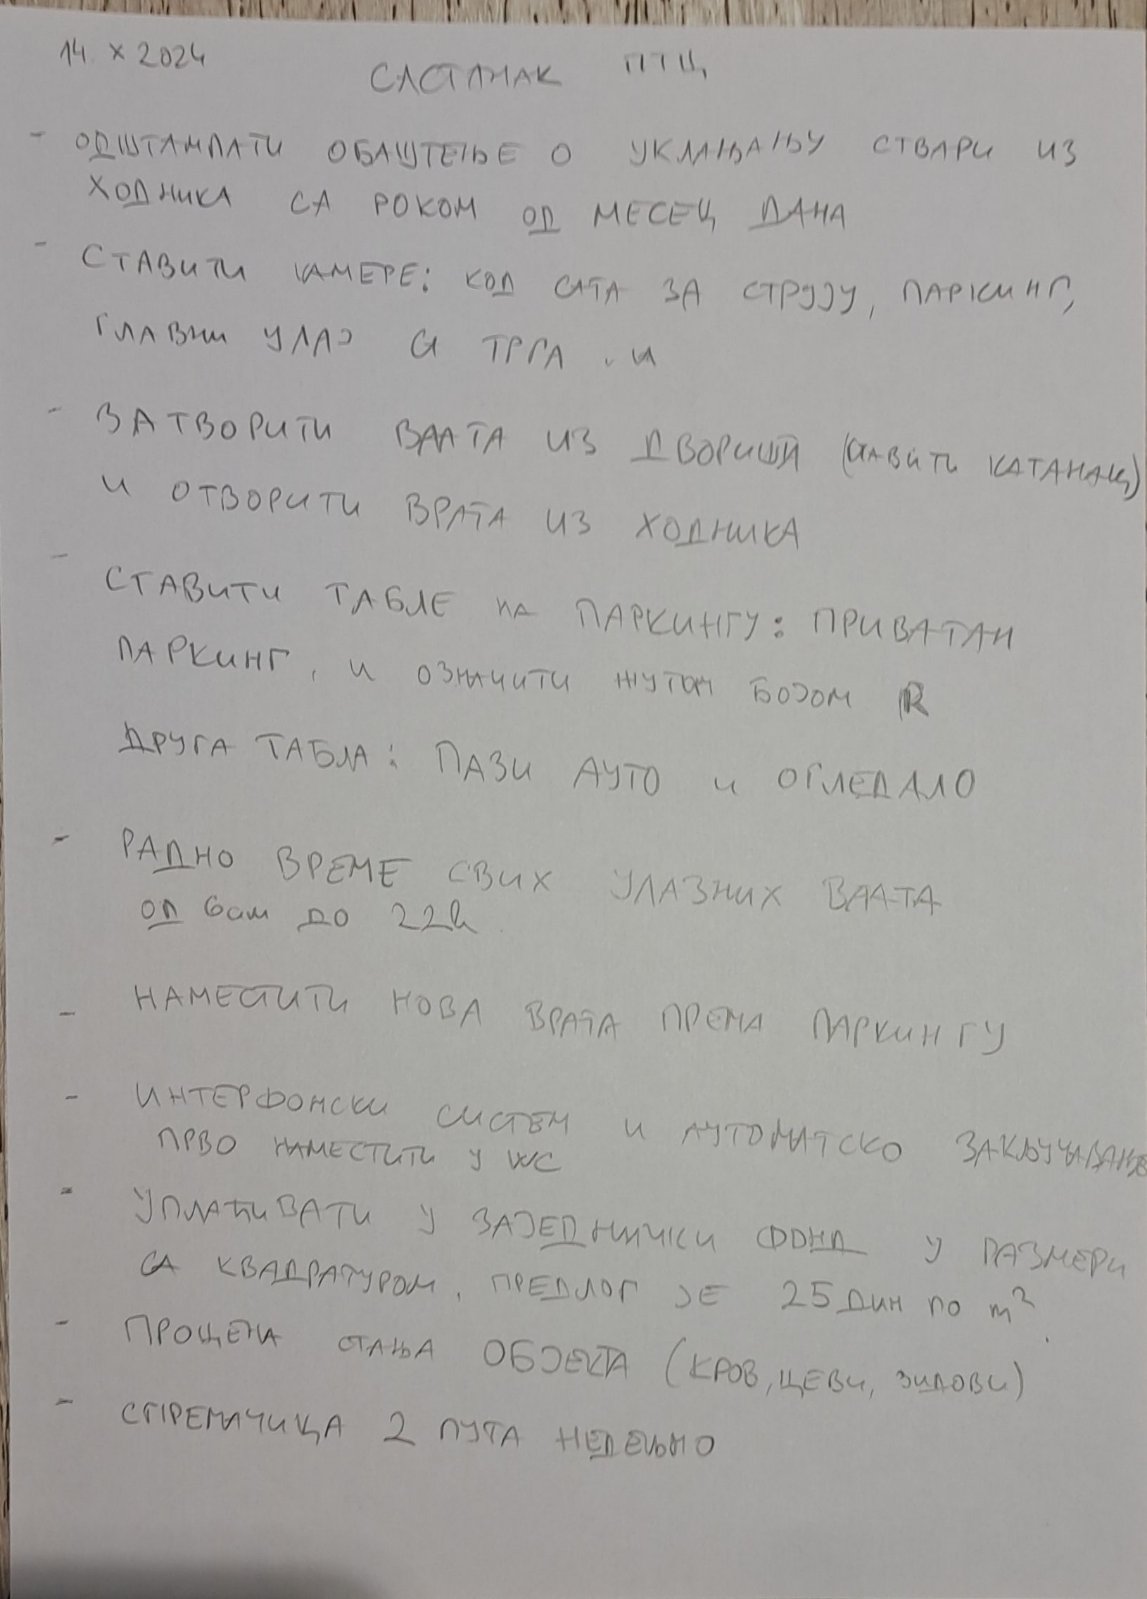 14. X 2024
САСТАНАК ПТЦ
- ОДШТАМПАТИ ОБАШТЕЊЕ О УКЛАЊАЊУ СТВАРИ ИЗ
ХОДНИКА СА РОКОМ ОД МЕСЕЦ ДАНА
- СТАВИТИ КАМЕРЕ: КОД САТА ЗА СТРУЈУ, ПАРКИНГ,
ГЛАВНИ УЛАЗ СА ТРГА. И
- ЗАТВОРИТИ ВРАТА ИЗ ДВОРИШТА (СТАВИТИ КАТАНАЦ)
И ОТВОРИТИ ВРАТА ИЗ ХОДНИКА
- СТАВИТИ ТАБЛЕ НА ПАРКИНГУ: ПРИВАТАН
ПАРКИНГ, И ОЗНАЧИТИ ЖУТОМ БОЈОМ R
ДРУГА ТАБЛА: ПАЗИ АУТО И ОГЛЕДАЛО
- РАДНО ВРЕМЕ СВИХ УЛАЗНИХ ВРАТА
ОД 6am ДО 22h.
- НАМЕСТИТИ НОВА ВРАТА ПРЕМА ПАРКИНГУ
- ИНТЕРФОНСКИ СИСТЕМ И АУТОМАТСКО ЗАКЉУЧАВАЊЕ
ПРВО НАМЕСТИТИ У WC
- УПЛАЋИВАТИ У ЗАЈЕДНИЧКИ ФОНД У РАЗМЕРИ
СА КВАДРАТУРОМ, ПРЕДЛОГ ЈЕ 25 ДИН ПО m².
- ПРОЦЕНА СТАЊА ОБЈЕКТА (КРОВ, ЦЕВИ, ЗИДОВИ)
- СПРЕМАЧИЦА 2 ПУТА НЕДЕЉНО